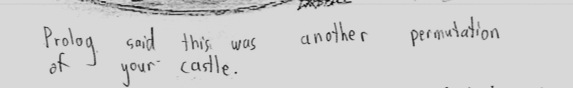 Prolog said this was another permutation
of your castle.